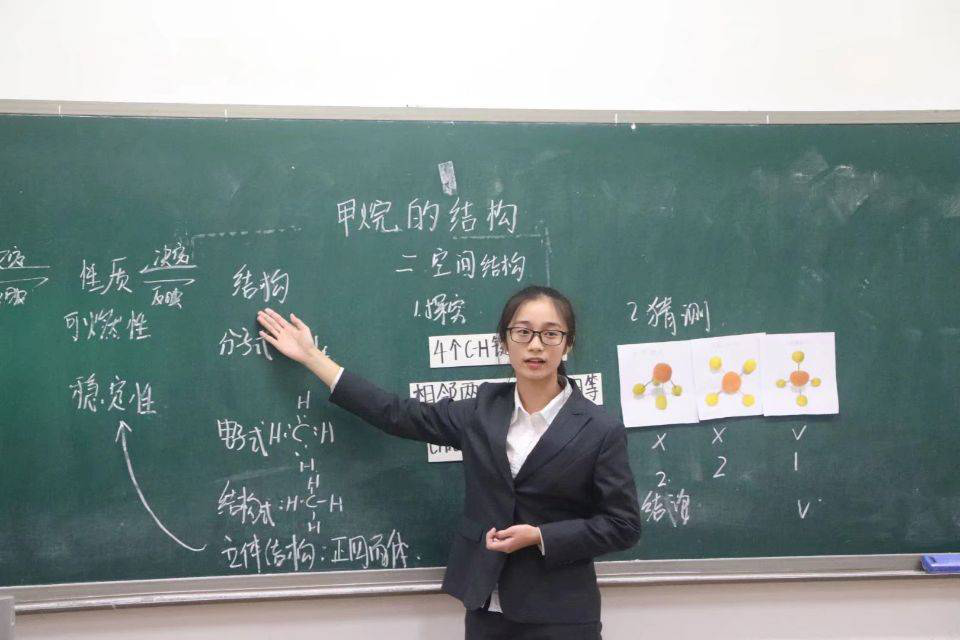 甲烷的结构
性质 决定 反映 结构
可燃性
分子式
稳定性
电子式 H:C:H
H
H
结构式: H-C-H
H
H
立体结构:正四面体.
二 空间结构
1.探究
4个C-H键
相邻两
等
2.猜测
× × √
2 2 1
结论 √